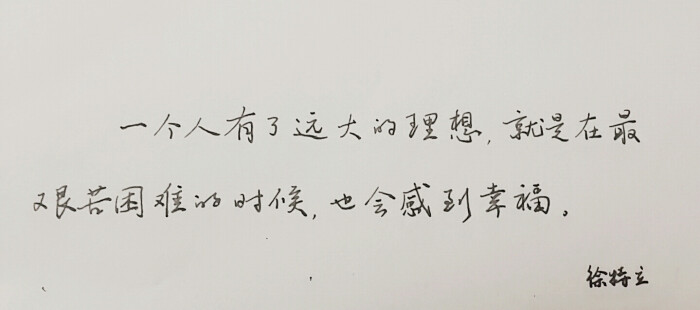 一个人有了远大的理想,就是在最
艰苦困难的时候,也会感到幸福。
徐特立